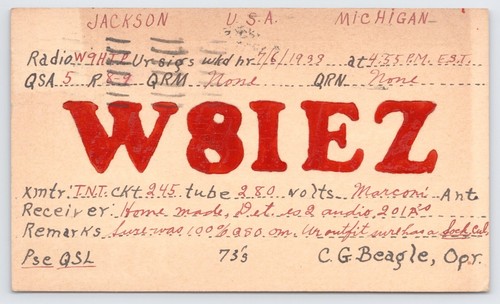 JACKSON U.S.A. MICHIGAN
Radio W9HTZ Ur sigs wkd hr 4/6/1933 at 4:35 P.M. E.S.T.
QSA 5 R 8-9 QRM None QRN None
W8IEZ
xmtr: T.N.T. ckt 245 tube 280 volts Marconi Ant
Receiver: Home made, Det es 2 audio, 201A's
Remarks Sure was 100% QSO om. Ur outfit sure has a Sock,
Pse QSL 73's C.G. Beagle, Opr.